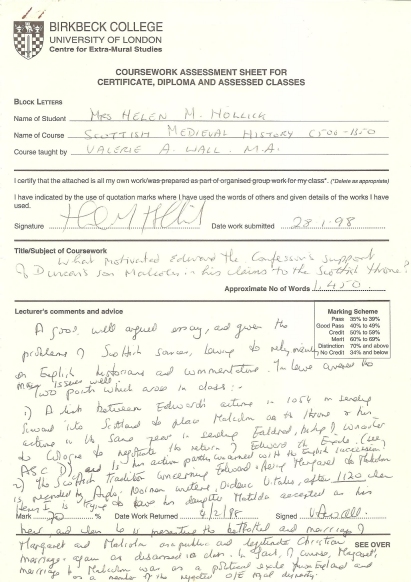 BIRKBECK COLLEGE
UNIVERSITY OF LONDON
Centre for Extra-Mural Studies
COURSEWORK ASSESSMENT SHEET FOR
CERTIFICATE, DIPLOMA AND ASSESSED CLASSES
BLOCK LETTERS
Name of Student MRS HELEN M. HOLLICK
Name of Course SCOTTISH MEDIEVAL HISTORY C500-1350
Course taught by VALERIE A. WALL. M.A.
I certify that the attached is all my own work/was prepared as part of organised group work for my class*. (*Delete as appropriate)
I have indicated by the use of quotation marks where I have used the words of others and given details of the works I have
used.
Signature Date work submitted 28.1.98
Title/Subject of Coursework
What motivated Edward the Confessor's support
of Duncan's son Malcolm in his claims to the Scottish throne?
Approximate No of Words 1,450
Lecturer's comments and advice
Marking Scheme
Pass 35% to 39%
Good Pass 40% to 49%
Credit 50% to 59%
Merit 60% to 69%
Distinction 70% and above
No Credit 34% and below
A good, well argued essay, and given the
problems of Scottish sources, having to rely mainly
on English historians and commentators. You have covered the
many issues well
Two points which arose in class:-
1) A link between Edward's actions in 1054 in sending
Siward into Scotland to place Malcolm on the throne & his
actions in the same year in sending Ealdred, Bishop of Worcester
to Cologne to negotiate the return of Edward the Exile. (see
ASC D) and is his action partly concerned with the English succession
2) The Scottish tradition concerning Edward being Margaret to Malcolm
is recorded by Anglo-Norman writers, Orderic Vitalis, after 1120 when
Henry I is trying to have his daughter Matilda accepted as his
Mark 70 % Date Work Returned 4/2/98 Signed V A Wall
heir and when he is presenting the betrothal and marriage of
Margaret and Malcolm as a public and legitimate Christian
SEE OVER
marriage, again as discussed in class. In fact, of course, Margaret's
marriage to Malcolm was as a political exile from England and
as a member of the rejected O/E royal dynasty.